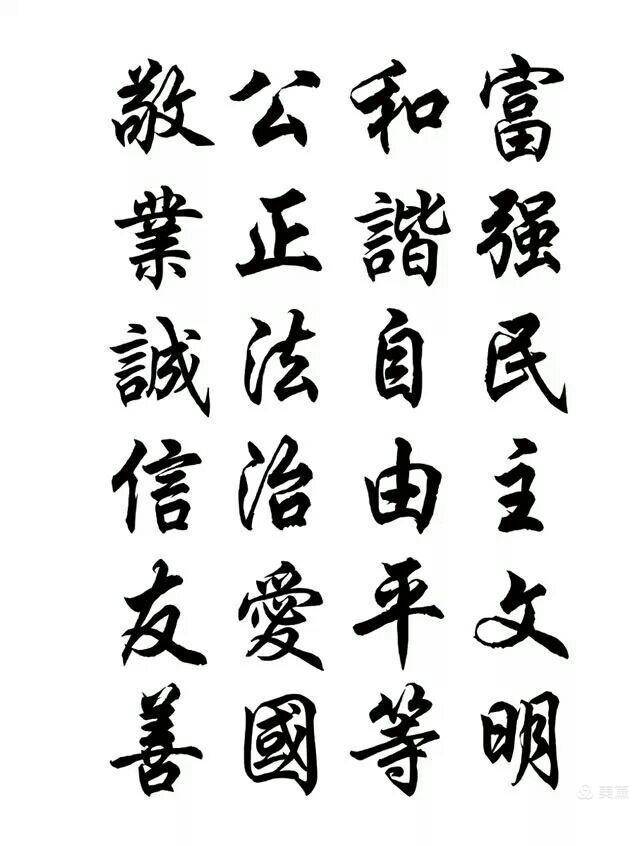 富强民主文明
和諧自由平等
公正法治愛國
敬業誠信友善